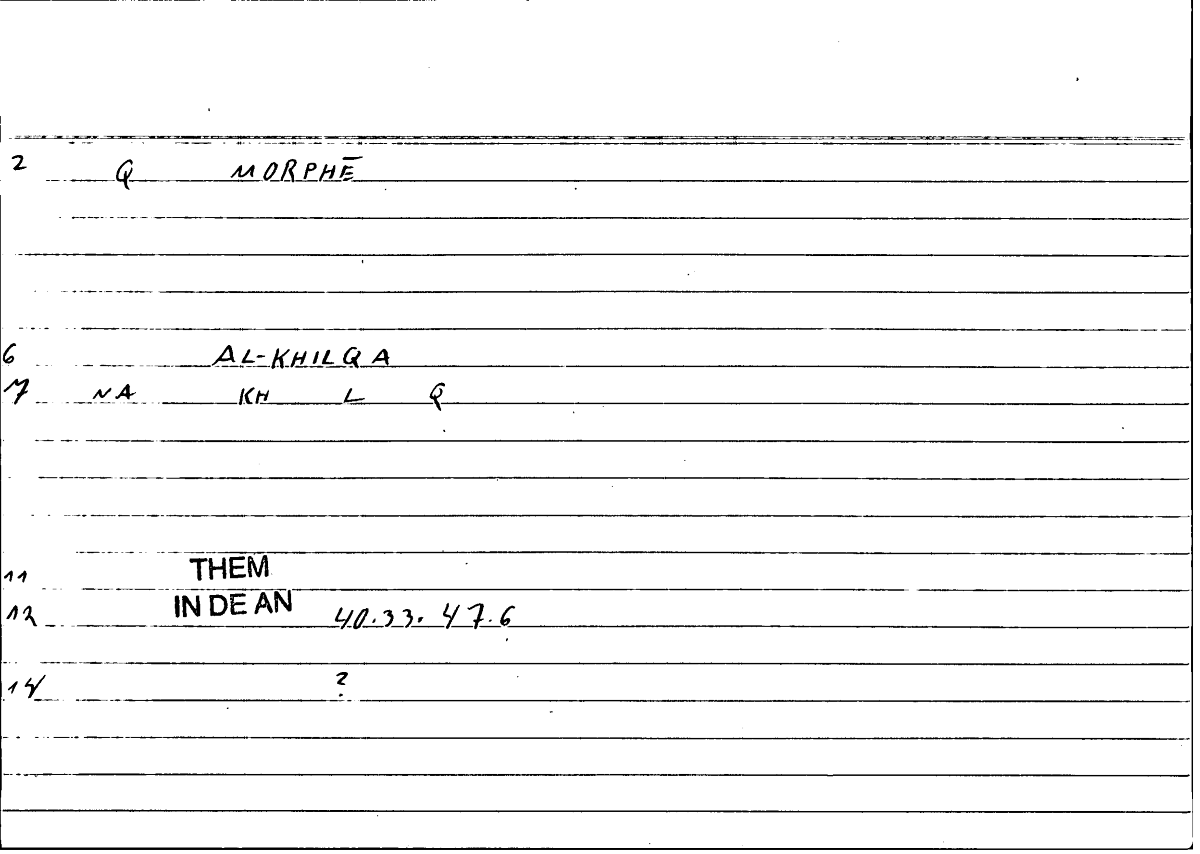 2 Q MORPHĒ
6 AL-KHILQA
7 NA KH L Q
11 THEM
12 IN DE AN 40.33.47.6
14 ?